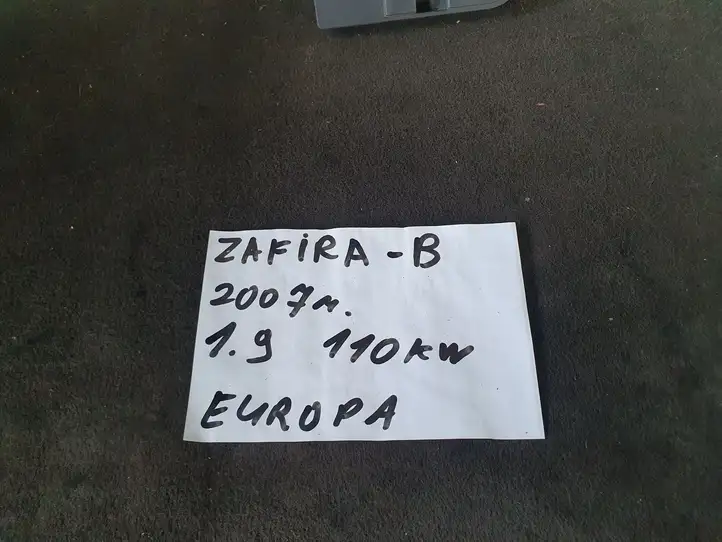 ZAFiRA - B
2007m.
1.9 110KW
EUROPA